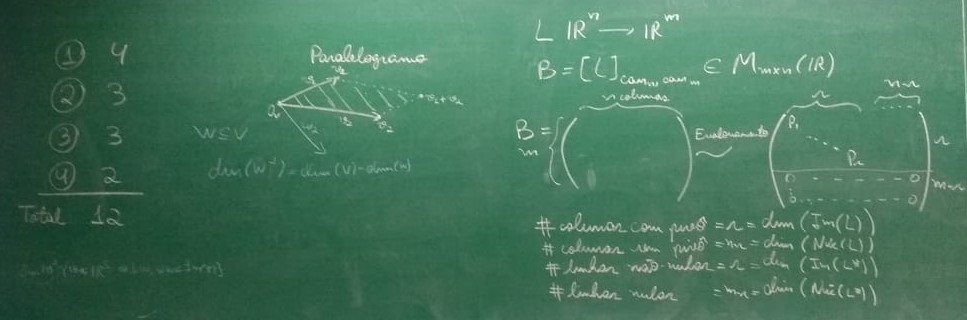 ① 4
② 3
③ 3
④ 2
Total 12
Paralelogramo
v₂
v₁+v₂
W⊆V
dim(W⊥)=dim(V)-dim(W)
L ℝⁿ → ℝᵐ
B = [L] ∈ M_{m×n}(ℝ)
n colunas
r
n-r
B =
m
Escalonamento
P₁
Pᵣ
r
m-r
0 - - - - 0
0 - - - - 0
# colunas com pivô = r = dim (Im(L))
# colunas sem pivô = n-r = dim (Nuc(L))
# linhas não nulas = r = dim (Im(L*))
# linhas nulas = m-r = dim (Nuc(L*))